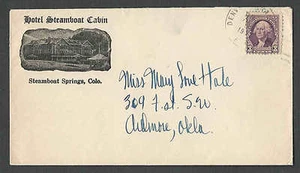 Hotel Steamboat Cabin
Steamboat Springs, Colo.
DENV
Miss Mary Love Hale
309 F. St. S.W.
Ardmore, Okla.